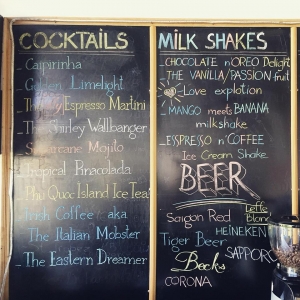 COCKTAILS
_ Caipirinha
_ Golden Limelight
_ Thirsty Espresso Martini
_ The Shirley Wallbanger
_ Sugarcane Mojito
_ Tropical Pinacolada
_ Phú Quóc Island Ice Tea
_ Irish Coffee aka
The Italian Mobster
_ The Eastern Dreamer
MILK SHAKES
_ CHOCOLATE n'OREO Delight
_ THE VANILLA/PASSION fruit
-Love explotion
_ MANGO meets BANANA
milkshake
_ ESPRESSO n'COFFEE
Ice Cream Shake
BEER
Saigon Red
Leffe
Blond
HEINEKEN
Tiger Beer
SAPPORO
Becks
CORONA